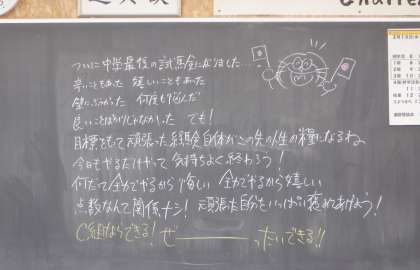 ついに中学最後の試験になりました…
辛いこともあった 嬉しいこともあった
壁にぶつかった 何度も悩んだ
良いことばかりじゃなかった でも!
目標をもって頑張った経験自体がこの先の人生の糧になるよ
今日もやるだけやって気持ちよく終わろう!
何だって全力でやるから悔しい 全力でやるから嬉しい
点数なんて関係ナシ! 頑張った自分をいっぱい褒めてあげよう!
C組ならできる! ぜ―――ったいできる!!
Challen